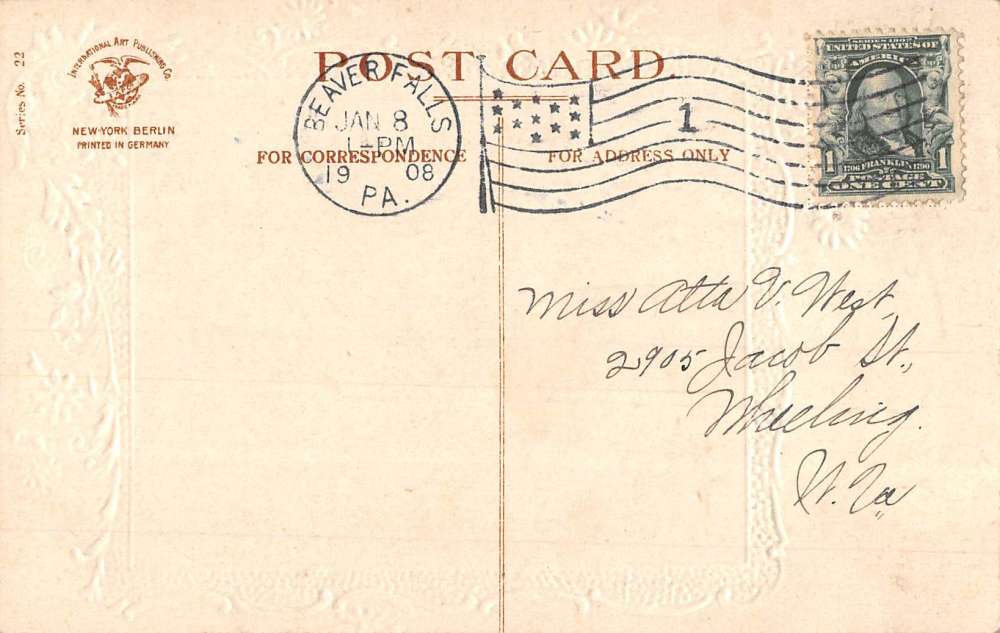 Series No. 22
INTERNATIONAL ART PUBLISHING CO.
NEW-YORK BERLIN
PRINTED IN GERMANY
POST CARD.
FOR CORRESPONDENCE
FOR ADDRESS ONLY
BEAVER FALLS
JAN 8
1-PM
19 08
PA.
1
SERIES 1902
UNITED STATES OF
AMERICA
1 1706 FRANKLIN 1790 1
POSTAGE
ONE CENT
Miss Atta V. West,
2905 Jacob St.,
Wheeling.
W. Va